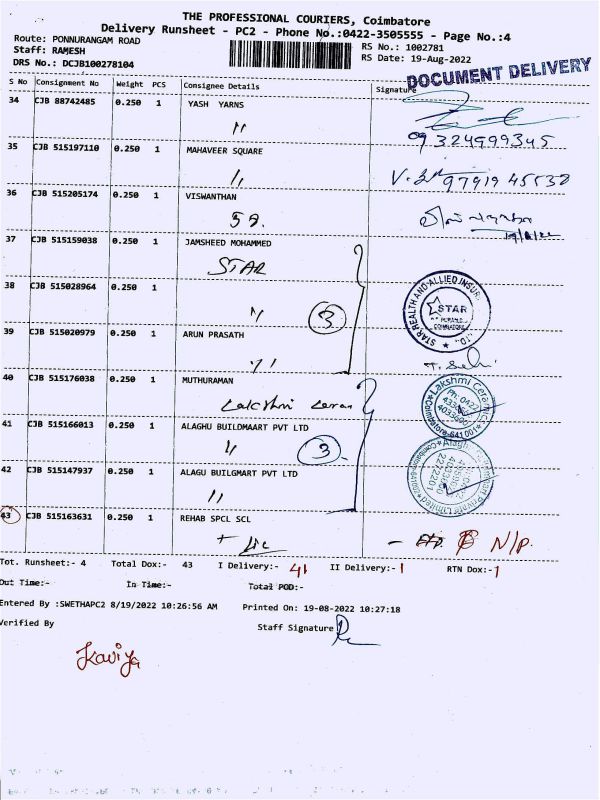 THE PROFESSIONAL COURIERS, Coimbatore
Delivery Runsheet - PC2 - Phone No.:0422-3505555 - Page No.:4
Route: PONNURANGAM ROAD
RS No.: 1002781
Staff: RAMESH
RS Date: 19-Aug-2022
DRS No.: DCJB100278104
DOCUMENT DELIVERY
S No Consignment No Weight PCS Consignee Details Signature
34 CJB 88742485 0.250 1 YASH YARNS
"
09324999345
35 CJB 515197110 0.250 1 MAHAVEER SQUARE
"
9791945538
36 CJB 515205174 0.250 1 VISWANTHAN
37 CJB 515159038 0.250 1 JAMSHEED MOHAMMED
STAR
38 CJB 515028964 0.250 1
" 3
STAR HEALTH AND ALLIED INSUR.
STAR
COIMBATORE
39 CJB 515020979 0.250 1 ARUN PRASATH
"
40 CJB 515176038 0.250 1 MUTHURAMAN
Lakshmi Ceramic
Ph: 0422
Coimbatore-641001
41 CJB 515166013 0.250 1 ALAGHU BUILDMAART PVT LTD
" 3
42 CJB 515147937 0.250 1 ALAGU BUILGMART PVT LTD
"
2272201
43 CJB 515163631 0.250 1 REHAB SPCL SCL
N/P.
Tot. Runsheet:- 4 Total Dox:- 43 I Delivery:- 41 II Delivery:- 1 RTN Dox:- 1
Out Time:- In Time:- Total POD:-
Entered By :SWETHAPC2 8/19/2022 10:26:56 AM Printed On: 19-08-2022 10:27:18
Verified By Staff Signature
Kaviya